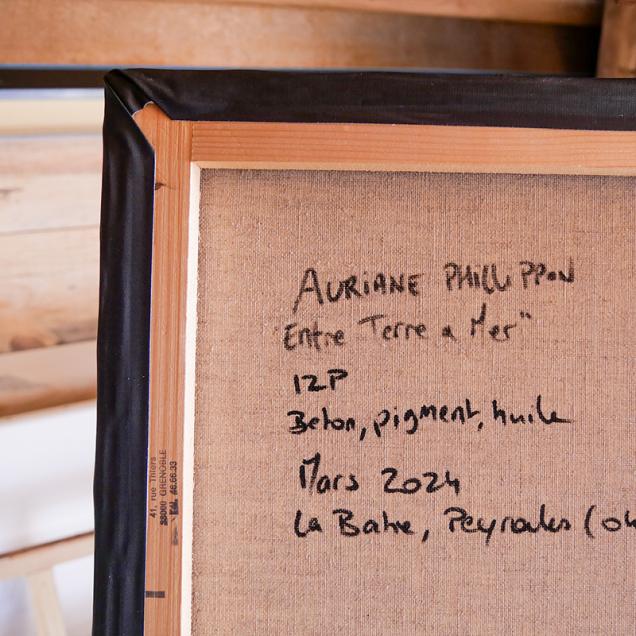 AURIANE PHILIPPON
Entre Terre & Mer"
12P
Beton, pigment, huile
Mars 2024
La Batie, Peyroules (04
41, rue Thiers
38000 GRENOBLE
Tél. 46.66.33